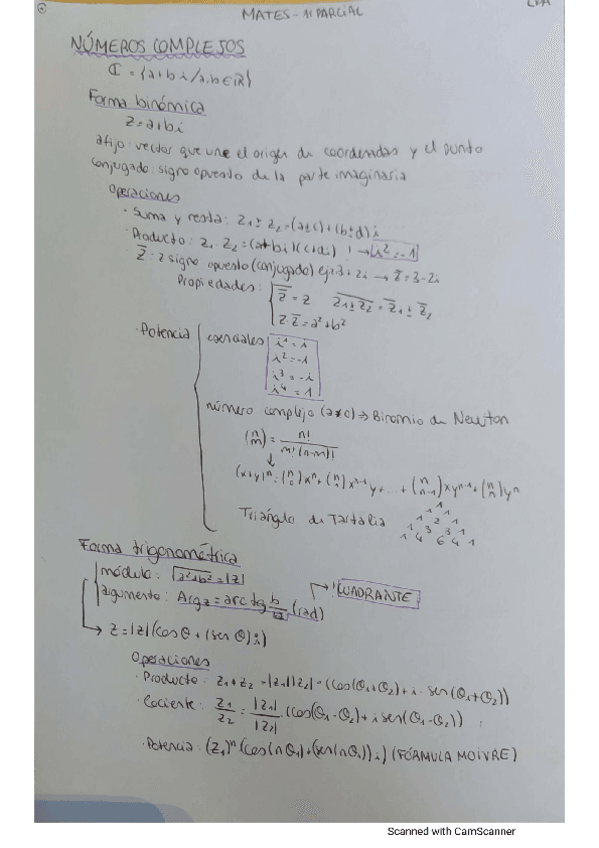 MATES - 1r PARCIAL
NÚMEROS COMPLEJOS
ℂ = {a+bi / a,b∈ℝ}
Forma binómica
z = a+bi
afijo: vector que une el origen de coordenadas y el punto
conjugado: signo opuesto de la parte imaginaria
Operaciones
· Suma y resta: z₁ ± z₂ = (a±c)+(b±d)i
· Producto: z₁ · z₂ = (a+bi)(c+di) ! → i² = -1
· z̄ : z signo opuesto (conjugado) ej: 3+2i → z̄ = 3-2i
Propiedades: z̿ = z   \overline{z₁±z₂} = z̄₁ ± z̄₂
z·z̄ = a²+b²
· Potencia esenciales i¹ = i
i² = -1
i³ = -i
i⁴ = 1
número complejo (a≠0) ⇒ Binomio de Newton
(n m) = n! / m!(n-m)!
↓
(x+y)ⁿ = (n 0)xⁿ + (n 1)xⁿ⁻¹y + ... + (n n-1)xyⁿ⁻¹ + (n n)yⁿ
Triángulo de Tartalia
1
1 1
1 2 1
1 3 3 1
1 4 6 4 1
Forma trigonométrica
módulo: √a²+b² = |z|
argumento: Arg z = arc tg b/a (rad) → ! CUADRANTE
→ z = |z|(cos θ + (sen θ)i)
Operaciones
· Producto: z₁+z₂ = |z₁||z₂| = (cos(θ₁+θ₂)+i · sen(θ₁+θ₂))
· Cociente: z₁/z₂ = |z₁|/|z₂| · (cos(θ₁-θ₂)+i sen(θ₁-θ₂))
· Potencia: (z₁)ⁿ (cos(nθ₁)+(sen(nθ₁))i) (FÓRMULA MOIVRE)
Scanned with CamScanner